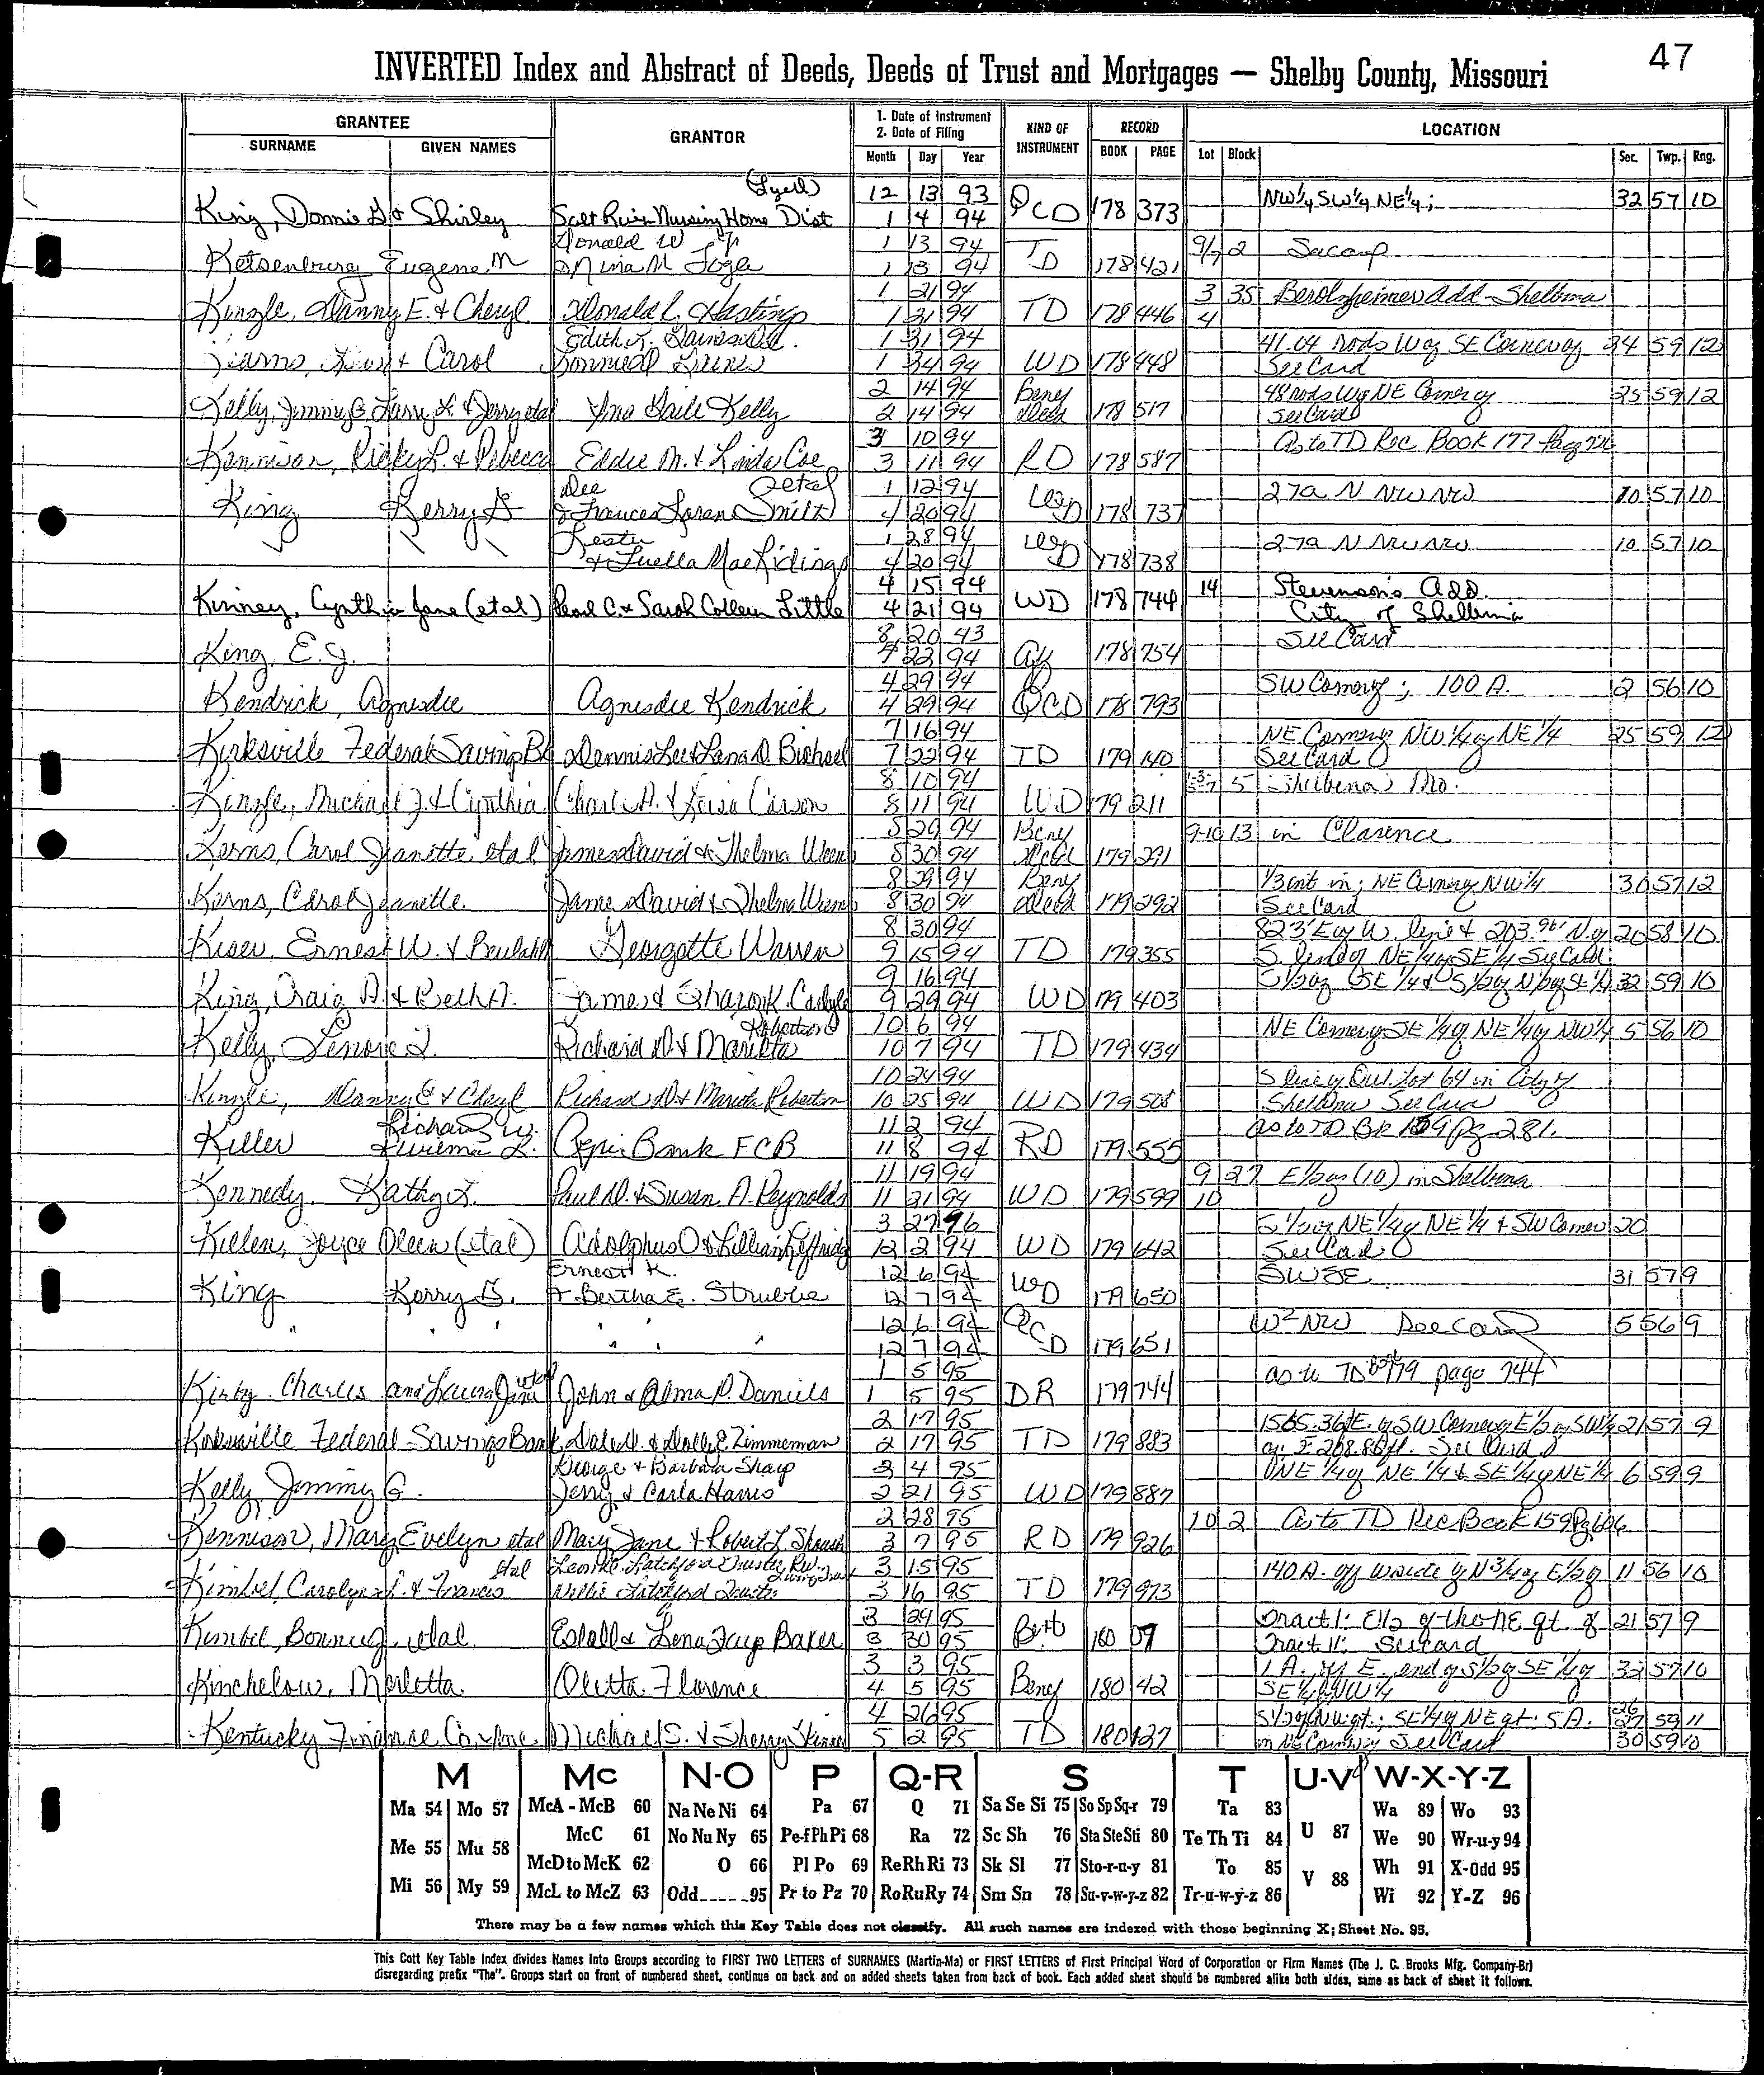 47
INVERTED Index and Abstract of Deeds, Deeds of Trust and Mortgages — Shelby County, Missouri
GRANTEE GRANTOR 1. Date of Instrument 2. Date of Filing KIND OF INSTRUMENT RECORD LOCATION
SURNAME GIVEN NAMES Month Day Year BOOK PAGE Lot Block Sec. Twp. Rng.
12 13 93 NW¼ SW¼ NE¼; 32 57 10
King, Donnie & Shirley Salt River Nursing Home Dist 1 4 94 QCD 178 373
Donald W Jr 1 13 94 9/7 2
Eugene M & Nina M 1 13 94 TD 178 421
1 21 94 3 35 Berolzheimer Add - Shelbina
Kinzle, Danny E. & Cheryl Donald L. Hastings 1 31 94 TD 178 446 4
Edith 1 31 94 41.04 rods W of SE Corner of 34 59 12
& Carol 1 94 WD 178 448 See Card
2 14 94 Beny 48 rods W of NE Corner of 25 59 12
Kelly, Jimmy G, Larry L & Jerry etal Ina Gaile Kelly 2 14 94 Deed 178 517 See Card
3 10 94 As to TD Rec Book 177 Page
Kennison, Ricky L. & Rebecca Eddie M. & Linda Coe 3 11 94 RD 178 587
Dee etal 1 12 94 27a N NW NW 10 57 10
King Kerry G & Frances Loran Smith 4 20 94 WD 178 737
Lester 1 28 94 27a N NW NW 10 57 10
& Luella Mae Ridings 4 20 94 WD 178 738
4 15 94 14 Stevenson's Add.
Kinney, Cynthia Jane (etal) Pearl C. & Sarah Colleen Little 4 21 94 WD 178 744 City of Shelbina
8 20 43 See Card
King, E.J. 4 22 94 Aff 178 754
4 29 94 SW Corner of; 100 A. 2 56 10
Kendrick, Agnesdee Agnesdee Kendrick 4 29 94 QCD 178 793
7 16 94 NE Corner of NW ¼ of NE ¼ 25 59 12
Kirksville Federal Savings Bk Dennis Lee & Lana D. 7 22 94 TD 179 140 See Card
8 10 94 5 Shelbina, Mo.
Kinzle, Michael J. & Cynthia Charles A. & Carson 8 11 94 WD 179 211
8 29 94 Beny 9-10 13 in Clarence
Kerns, Carol Jeanette etal James David & Thelma 8 30 94 Deed 179 291
8 29 94 Beny 1/3 int in; NE Corner of NW¼ 30 57 12
Kerns, Carol Jeanette James David & Thelma 8 30 94 Deed 179 292 See Card
8 30 94 823' E of W. line & 203.96' N. of 20 58 10
Kiser, Ernest W. & Beulah Georgette Warren 9 15 94 TD 179 355 S. line of NE ¼ of SE ¼ See Card
9 16 94 S½ of SE ¼ & S½ of N½ of SE¼ 32 59 10
King, Craig A. & Beth A. James & Sharon K. Carlyle 9 29 94 WD 179 403
Robertson 10 6 94 NE Corner of SE ¼ of NE ¼ of NW¼ 5 56 10
Kelly, Lenore L. Richard D. & Marietta 10 7 94 TD 179 434
10 24 94 S line of Out Lot 64 in City of
Kinzle, Danny E & Cheryl Richard D. & Marietta Robertson 10 25 94 WD 179 508 Shelbina See Card
Richard W. 11 2 94 as to TD BK 159 Pg 281.
Killer & Wilma L. Agri Bank FCB 11 8 94 RD 179 555
11 19 94 9 27 E½ of (10) in Shelbina
Kennedy, Kathy L. Paul D. & Susan A. Reynolds 11 21 94 WD 179 599 10
3 27 96 S½ of NE¼ of NE ¼ & SW Corner 20
Killen, Joyce Oleen (etal) Adolphus O & Lillian 12 2 94 WD 179 642 See Card
Ernest K. 12 6 94 SW SE 31 57 9
King Kerry G. & Bertha E. Strubbe 12 7 94 WD 179 650
" " " " " " 12 6 94 W² NW See Card 5 56 9
12 7 94 QCD 179 651
etal 1 5 95 as to TD 179 page 744
Kirby Charles and Laura Jane John & Alma P. Daniels 1 5 95 DR 179 744
2 17 95 1565.36' E. of SW Corner of E½ of SW¼ 21 57 9
Kirksville Federal Savings Bank Dale D. & Dolly E. Zimmerman 2 17 95 TD 179 883 See Card
George & Barbara Sharp 2 4 95 NE ¼ of NE ¼ & SE ¼ of NE ¼ 6 59 9
Kelly, Jimmy G. Jerry & Carla Harris 2 21 95 WD 179 887
2 28 95 10 2 As to TD Rec Book 159 Pg 606
Kennison, Mary Evelyn etal Mary Jane & Robert L. 3 7 95 RD 179 926
etal Trustee Rev. Living Trust 3 15 95 140 A. off W side of N¾ of E½ of 11 56 10
Kimbel, Carolyn L. & Francis Willie Trustee 3 16 95 TD 179 973
3 29 95 Tract I: E½ of the NE qt. of 21 57 9
Kimbel, Bonnie J. etal. Estall & Lena Faye Baker 3 30 95 180 09 Tract II: See Card
3 3 95 1 A. off E. end of S½ of SE ¼ of 32 57 10
Kinchelow, Merletta Oletta Florence 4 5 95 Beny 180 42 SE ¼ of NW¼
4 26 95 S½ of NW qt.; SE¼ of NE qt. 5A. 26 27 59 11
Kentucky Finance Co., Inc. Michael S. & Sherry 5 2 95 TD 180 127 in NE Corner of See Card 30 59 10
M Mc N-O P Q-R S T U-V W-X-Y-Z
Ma 54 Mo 57 McA - McB 60 Na Ne Ni 64 Pa 67 Q 71 Sa Se Si 75 So Sp Sq-r 79 Ta 83 U 87 Wa 89 Wo 93
Me 55 Mu 58 McC 61 No Nu Ny 65 Pe-f Ph Pi 68 Ra 72 Sc Sh 76 Sta Ste Sti 80 Te Th Ti 84 We 90 Wr-u-y 94
McD to McK 62 O 66 Pl Po 69 Re Rh Ri 73 Sk Sl 77 Sto-r-u-y 81 To 85 V 88 Wh 91 X-Odd 95
Mi 56 My 59 McL to McZ 63 Odd-----95 Pr to Pz 70 Ro Ru Ry 74 Sm Sn 78 Su-v-w-y-z 82 Tr-u-w-y-z 86 Wi 92 Y-Z 96
There may be a few names which this Key Table does not classify. All such names are indexed with those beginning X; Sheet No. 95.
This Cott Key Table Index divides Names Into Groups according to FIRST TWO LETTERS of SURNAMES (Martin-Ma) or FIRST LETTERS of First Principal Word of Corporation or Firm Names (The J. C. Brooks Mfg. Company-Br)
disregarding prefix "The". Groups start on front of numbered sheet, continue on back and on added sheets taken from back of book. Each added sheet should be numbered alike both sides, same as back of sheet it follows.